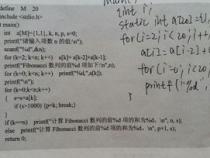 define M 20
include <stdio.h>
main()
int a[M]={1,1}, k, n, p, s=0;
printf("请输入项数 n 的值:\n");
scanf("%d",&n);
for (k=2; k<n; k++) a[k]=a[k-2]+a[k-1];
printf("Fibonacci 数列的前%d 项如下:\n",n);
for (k=0;k<n;k++) printf("%d,",a[k]);
printf("\n");
for (k=0;k<n;k++)
{ s=s+a[k];
if (s>1000) {p=k; break;}
}
if (k==n) printf("计算 Fibonacci 数列的前%d 项的和为%d。\n",
else printf("计算 Fibonacci 数列的前%d 项的和为%d。\n", p+1, s);
return 0;
int i;
static int a[20]={1,
for(i=2; i<20; i++
a[i]=a[i-2]+
for(i=0; i<20
printf("%d